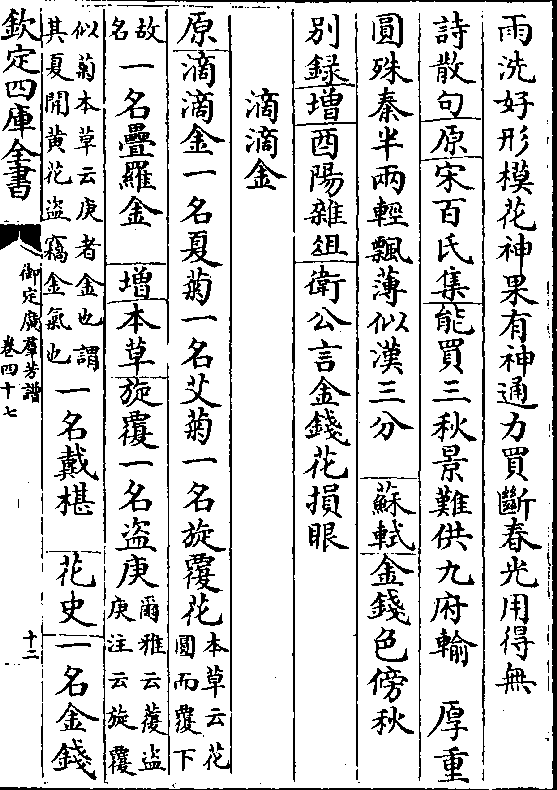 雨洗好形模花神果有神通力買斷春光用得無
詩散句原宋百氏集能買三秋景難供九府輸　厚重
圓殊秦半兩輕飄薄似漢三分　蘇軾金錢色傍秋
別録增酉陽雜俎衛公言金錢花損眼
滴滴金
原滴滴金一名夏菊一名艾菊一名旋覆花本草云花圓而覆下
故名一名疊羅金　增本草旋覆一名盜庚爾雅云蕧盜庚注云旋覆
似菊本草云庚者金也謂其夏開黄花盜竊金氣也一名戴椹　花史一名金錢
欽定四庫全書
御定廣羣芳譜
卷四十七
十二